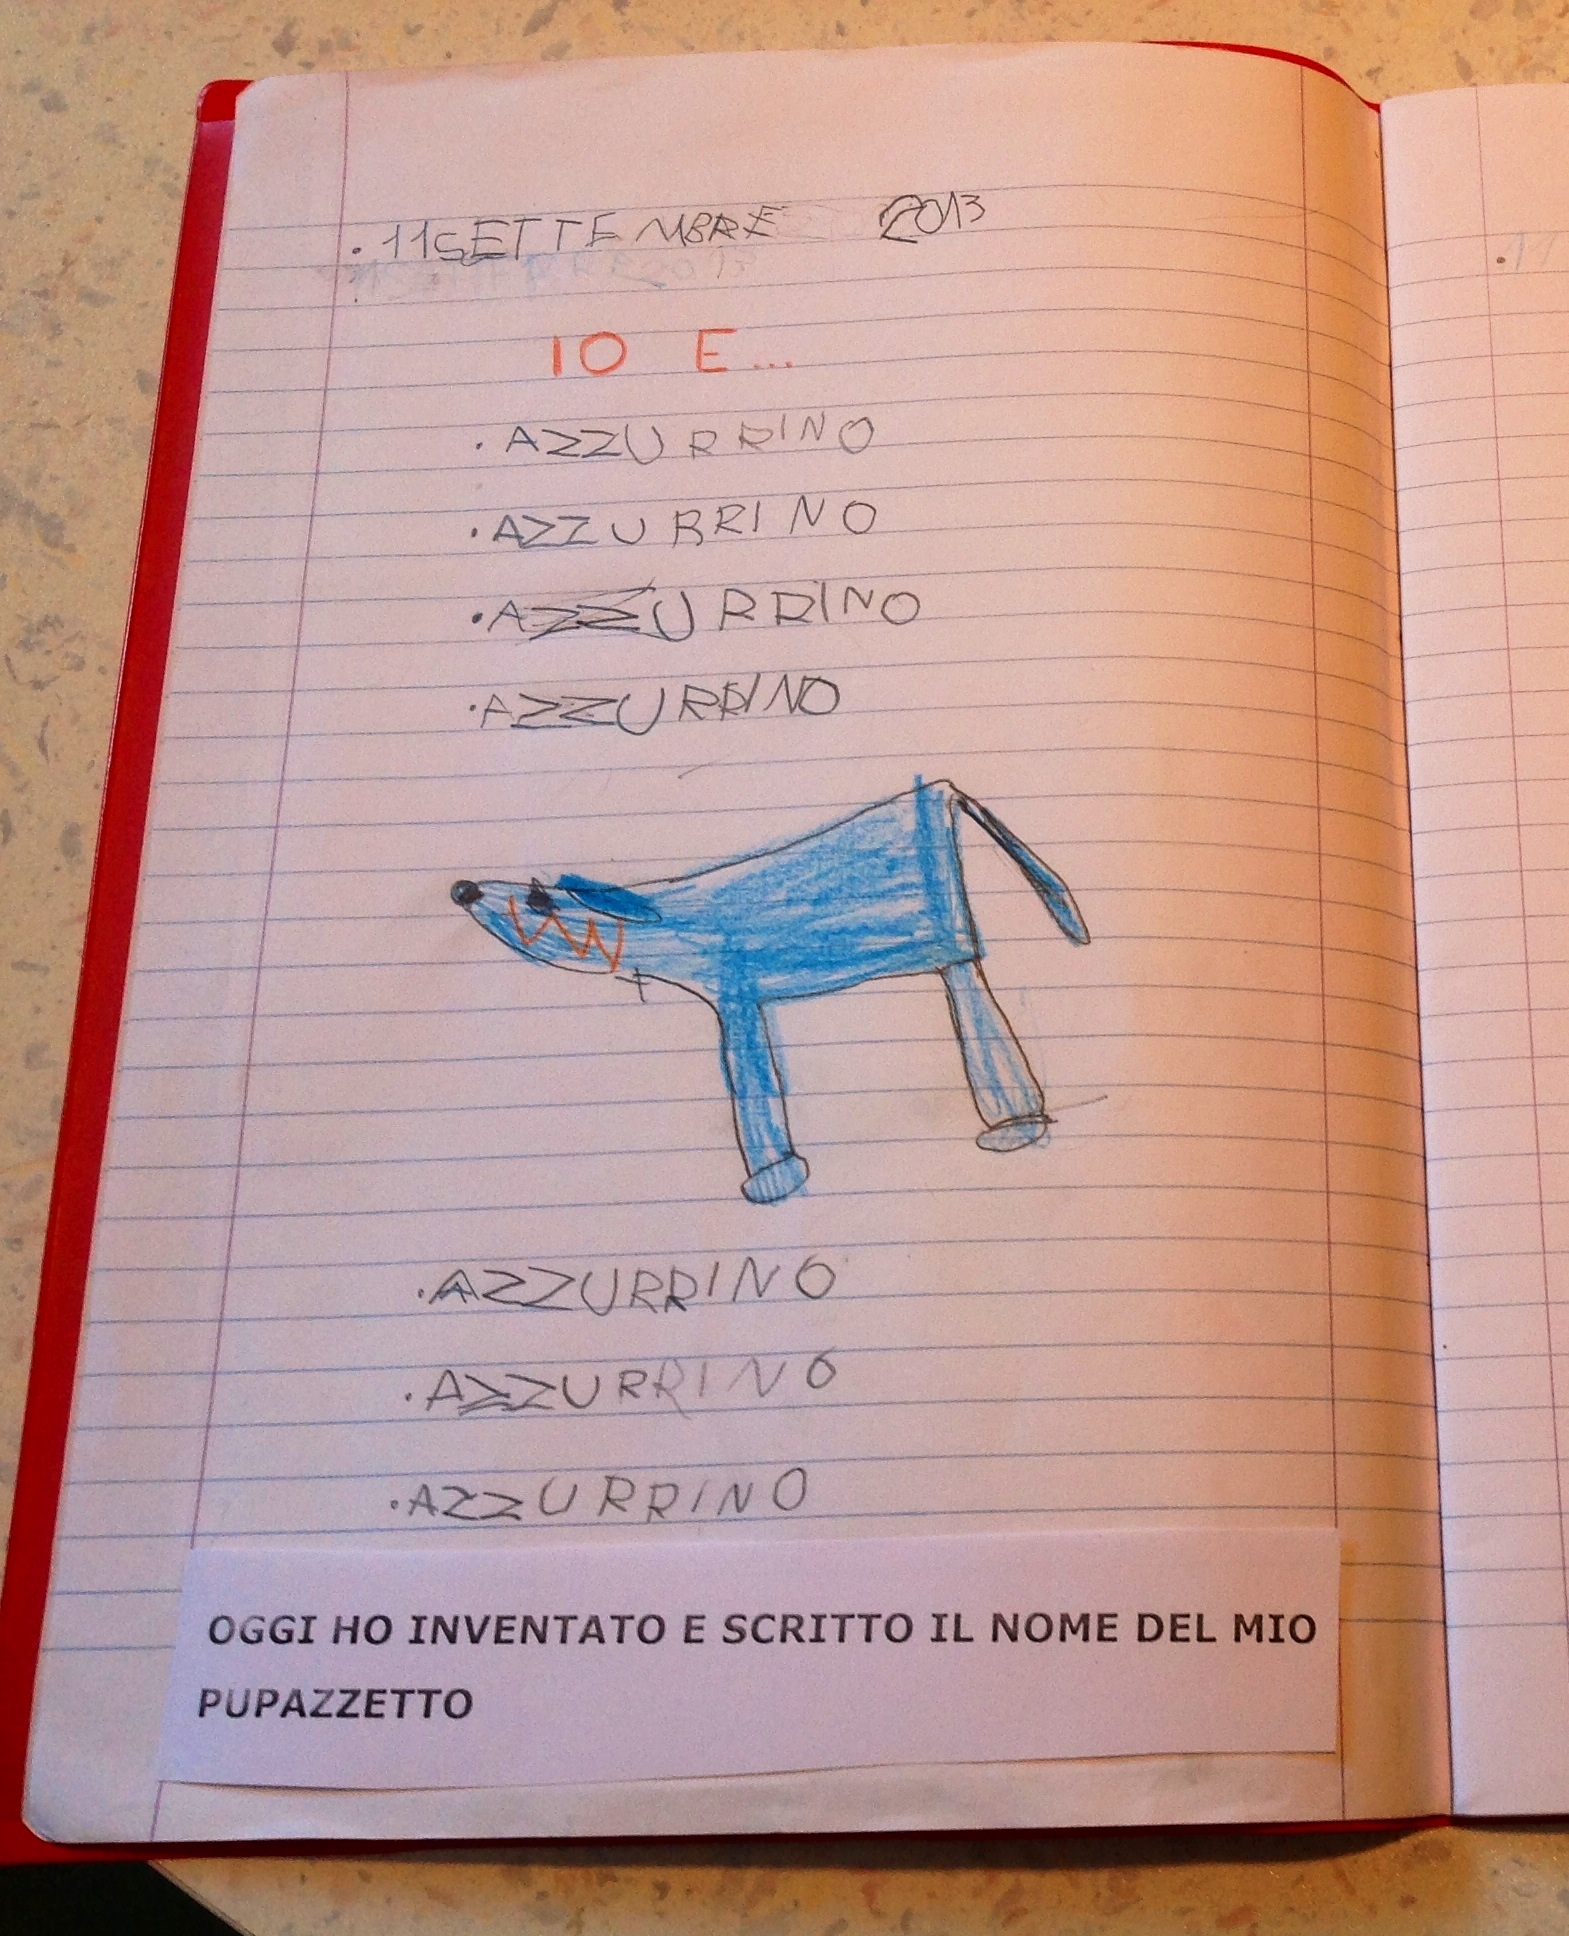 .11SETTEMBRE 2013
IO E...
.AZZURRINO
.AZZURRINO
.AZZURRINO
.AZZURRINO
.AZZURRINO
.AZZURRINO
.AZZURRINO
OGGI HO INVENTATO E SCRITTO IL NOME DEL MIO
PUPAZZETTO
.11